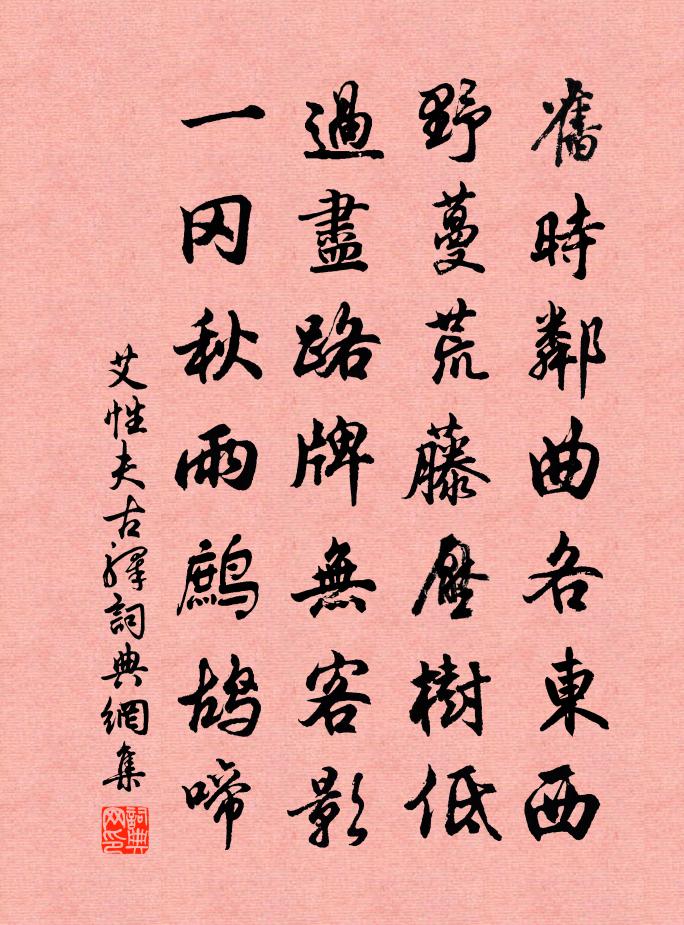 舊時鄰曲各東西
野蔓荒藤壓樹低
過盡路牌無客影
一冈秋雨鷓鴣啼
艾性夫古驛詞典網集
詞典
网印